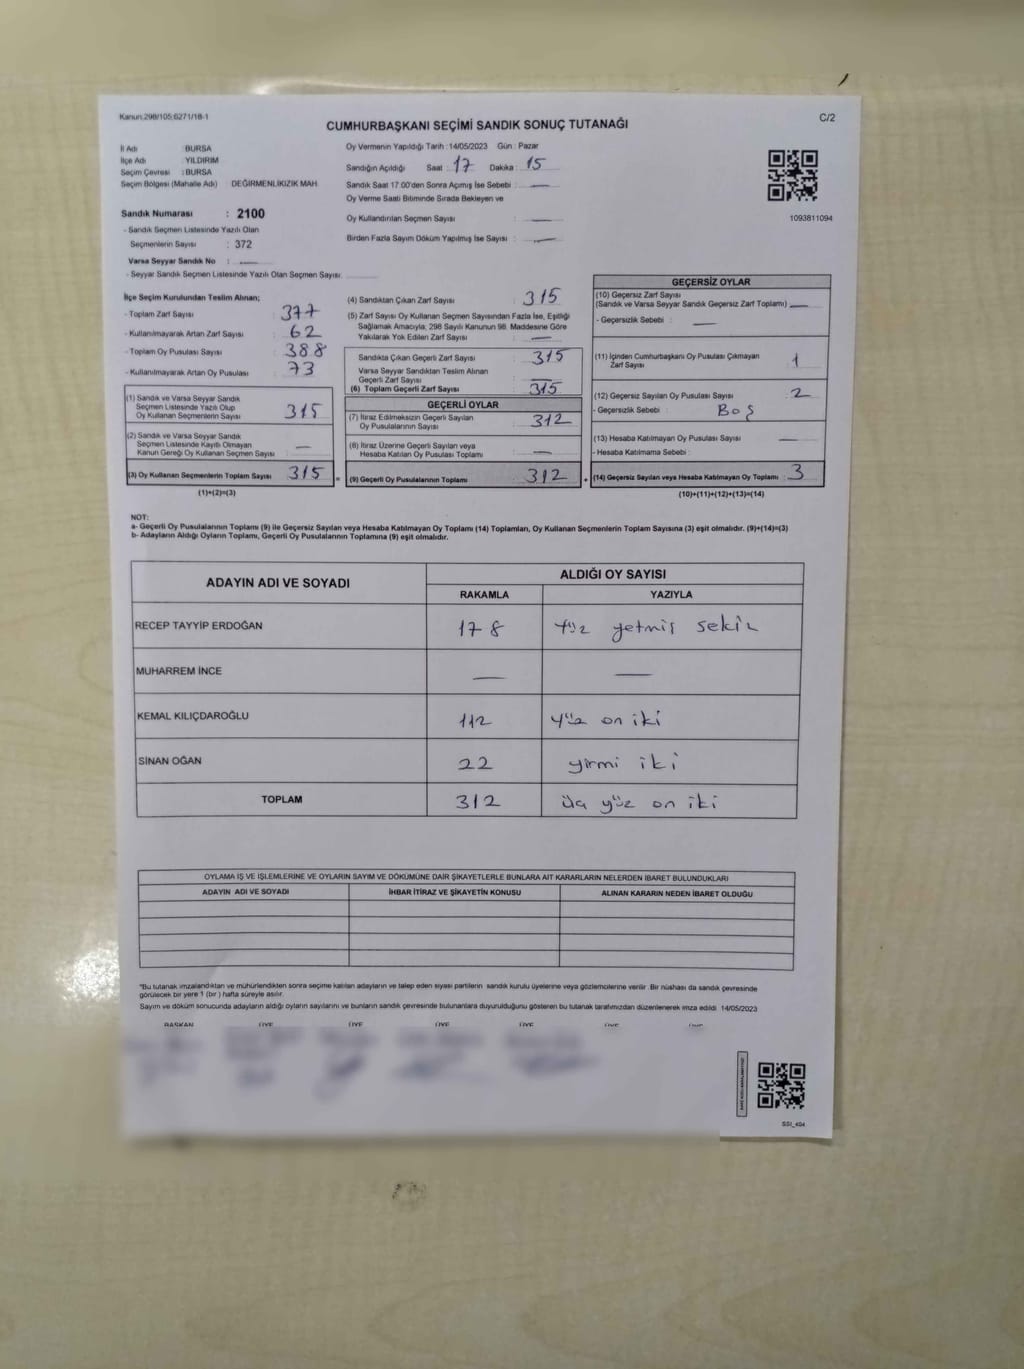 Kanun:298/105;6271/18-1
C/2
CUMHURBAŞKANI SEÇİMİ SANDIK SONUÇ TUTANAĞI
İl Adı : BURSA
İlçe Adı : YILDIRIM
Seçim Çevresi : BURSA
Seçim Bölgesi (Mahalle Adı) : DEĞİRMENLİKIZIK MAH.
Sandık Numarası : 2100
- Sandık Seçmen Listesinde Yazılı Olan
Seçmenlerin Sayısı : 372
Varsa Seyyar Sandık No : —
- Seyyar Sandık Seçmen Listesinde Yazılı Olan Seçmen Sayısı:
Oy Vermenin Yapıldığı Tarih :14/05/2023 Gün : Pazar
Sandığın Açıldığı Saat : 17 Dakika : 15
Sandık Saat 17.00'den Sonra Açımış İse Sebebi : —
Oy Verme Saati Bitiminde Sırada Bekleyen ve
Oy Kullandırılan Seçmen Sayısı : —
Birden Fazla Sayım Döküm Yapılmış İse Sayısı : —
1093811094
İlçe Seçim Kurulundan Teslim Alınan;
- Toplam Zarf Sayısı : 377
- Kullanılmayarak Artan Zarf Sayısı : 62
- Toplam Oy Pusulası Sayısı : 388
- Kullanılmayarak Artan Oy Pusulası : 73
(1) Sandık ve Varsa Seyyar Sandık
Seçmen Listesinde Yazılı Olup
Oy Kullanan Seçmenlerin Sayısı : 315
(2) Sandık ve Varsa Seyyar Sandık
Seçmen Listesinde Kayıtlı Olmayan
Kanun Gereği Oy Kullanan Seçmen Sayısı : —
(3) Oy Kullanan Seçmenlerin Toplam Sayısı : 315
(1)+(2)=(3)
(4) Sandıktan Çıkan Zarf Sayısı : 315
(5) Zarf Sayısı Oy Kullanan Seçmen Sayısından Fazla İse, Eşitliği
Sağlamak Amacıyla, 298 Sayılı Kanunun 98. Maddesine Göre
Yakılarak Yok Edilen Zarf Sayısı : —
Sandıkta Çıkan Geçerli Zarf Sayısı : 315
Varsa Seyyar Sandıktan Teslim Alınan
Geçerli Zarf Sayısı : —
(6) Toplam Geçerli Zarf Sayısı : 315
GEÇERLİ OYLAR
(7) İtiraz Edilmeksizin Geçerli Sayılan
Oy Pusulalarının Sayısı : 312
(8) İtiraz Üzerine Geçerli Sayılan veya
Hesaba Katılan Oy Pusulası Toplamı : —
= (9) Geçerli Oy Pusulalarının Toplamı : 312
GEÇERSİZ OYLAR
(10) Geçersiz Zarf Sayısı
(Sandık ve Varsa Seyyar Sandık Geçersiz Zarf Toplamı) : —
- Geçersizlik Sebebi : —
(11) İçinden Cumhurbaşkanı Oy Pusulası Çıkmayan
Zarf Sayısı : 1
(12) Geçersiz Sayılan Oy Pusulası Sayısı : 2
- Geçersizlik Sebebi : BOŞ
(13) Hesaba Katılmayan Oy Pusulası Sayısı : —
- Hesaba Katılmama Sebebi :
+ (14) Geçersiz Sayılan veya Hesaba Katılmayan Oy Toplamı : 3
(10)+(11)+(12)+(13)=(14)
NOT:
a- Geçerli Oy Pusulalarının Toplamı (9) ile Geçersiz Sayılan veya Hesaba Katılmayan Oy Toplamı (14) Toplamları, Oy Kullanan Seçmenlerin Toplam Sayısına (3) eşit olmalıdır. (9)+(14)=(3)
b- Adayların Aldığı Oyların Toplamı, Geçerli Oy Pusulalarının Toplamına (9) eşit olmalıdır.
ADAYIN ADI VE SOYADI ALDIĞI OY SAYISI
RAKAMLA YAZIYLA
RECEP TAYYİP ERDOĞAN 178 yüz yetmiş sekiz
MUHARREM İNCE — —
KEMAL KILIÇDAROĞLU 112 yüz on iki
SİNAN OĞAN 22 yirmi iki
TOPLAM 312 üç yüz on iki
OYLAMA İŞ VE İŞLEMLERİNE VE OYLARIN SAYIM VE DÖKÜMÜNE DAİR ŞİKAYETLERLE BUNLARA AİT KARARLARIN NELERDEN İBARET BULUNDUKLARI
ADAYIN ADI VE SOYADI İHBAR İTİRAZ VE ŞİKAYETİN KONUSU ALINAN KARARIN NEDEN İBARET OLDUĞU
*Bu tutanak imzalandıktan ve mühürlendikten sonra seçime katılan adayların ve talep eden siyasi partilerin sandık kurulu üyelerine veya gözlemcilerine verilir .Bir nüshası da sandık çevresinde
görülecek bir yere 1 (bir ) hafta süreyle asılır.
Sayım ve döküm sonucunda adayların aldığı oyların sayılarını ve bunların sandık çevresinde bulunanlara duyurulduğunu gösteren bu tutanak tarafımızdan düzenlenerek imza edildi. 14/05/2023
BAŞKAN ÜYE ÜYE ÜYE ÜYE ÜYE ÜYE
SSI_404